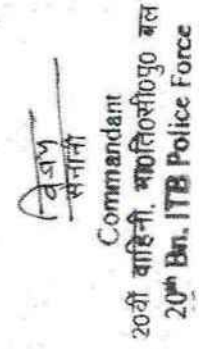 सेनानी
Commandant
20वीं वाहिनी, भा०ति०सी०पु० बल
20th Bn. ITB Police Force